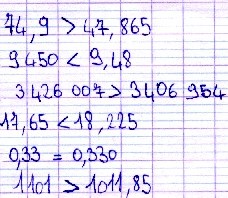 74,9 > 47,865
9450 < 9,48
3426 007 > 3406 954
17,65 < 18,225
0,33 = 0,330
1101 > 1011,85